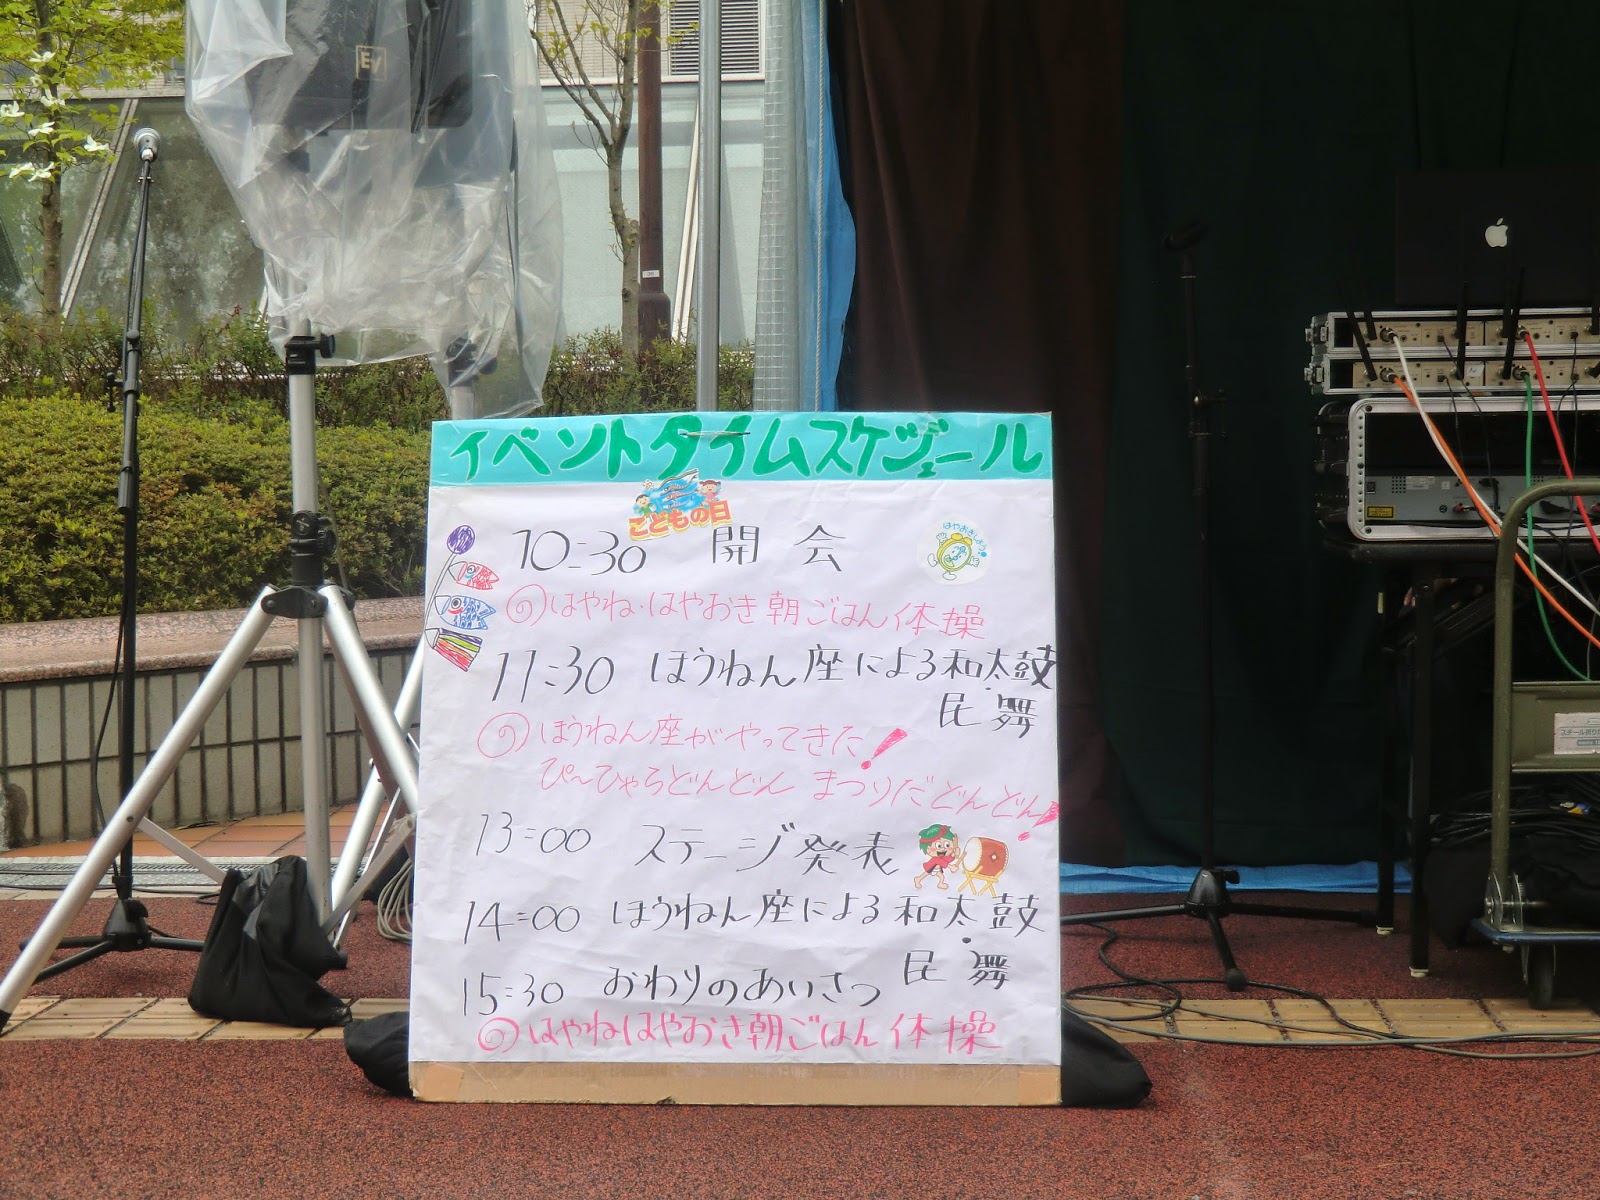 イベントタイムスケジュール
こどもの日
10:30 開会
はやおきしよう!
の はやね・はやおき朝ごはん体操
11:30 ほうねん座による和太鼓・
民舞
の ほうねん座がやってきた!
ぴ〜ひゃらどんどん まつりだどんどん!
13:00 ステージ発表
14:00 ほうねん座による和太鼓・
民舞
15:30 おわりのあいさつ
の はやねはやおき朝ごはん体操
EV